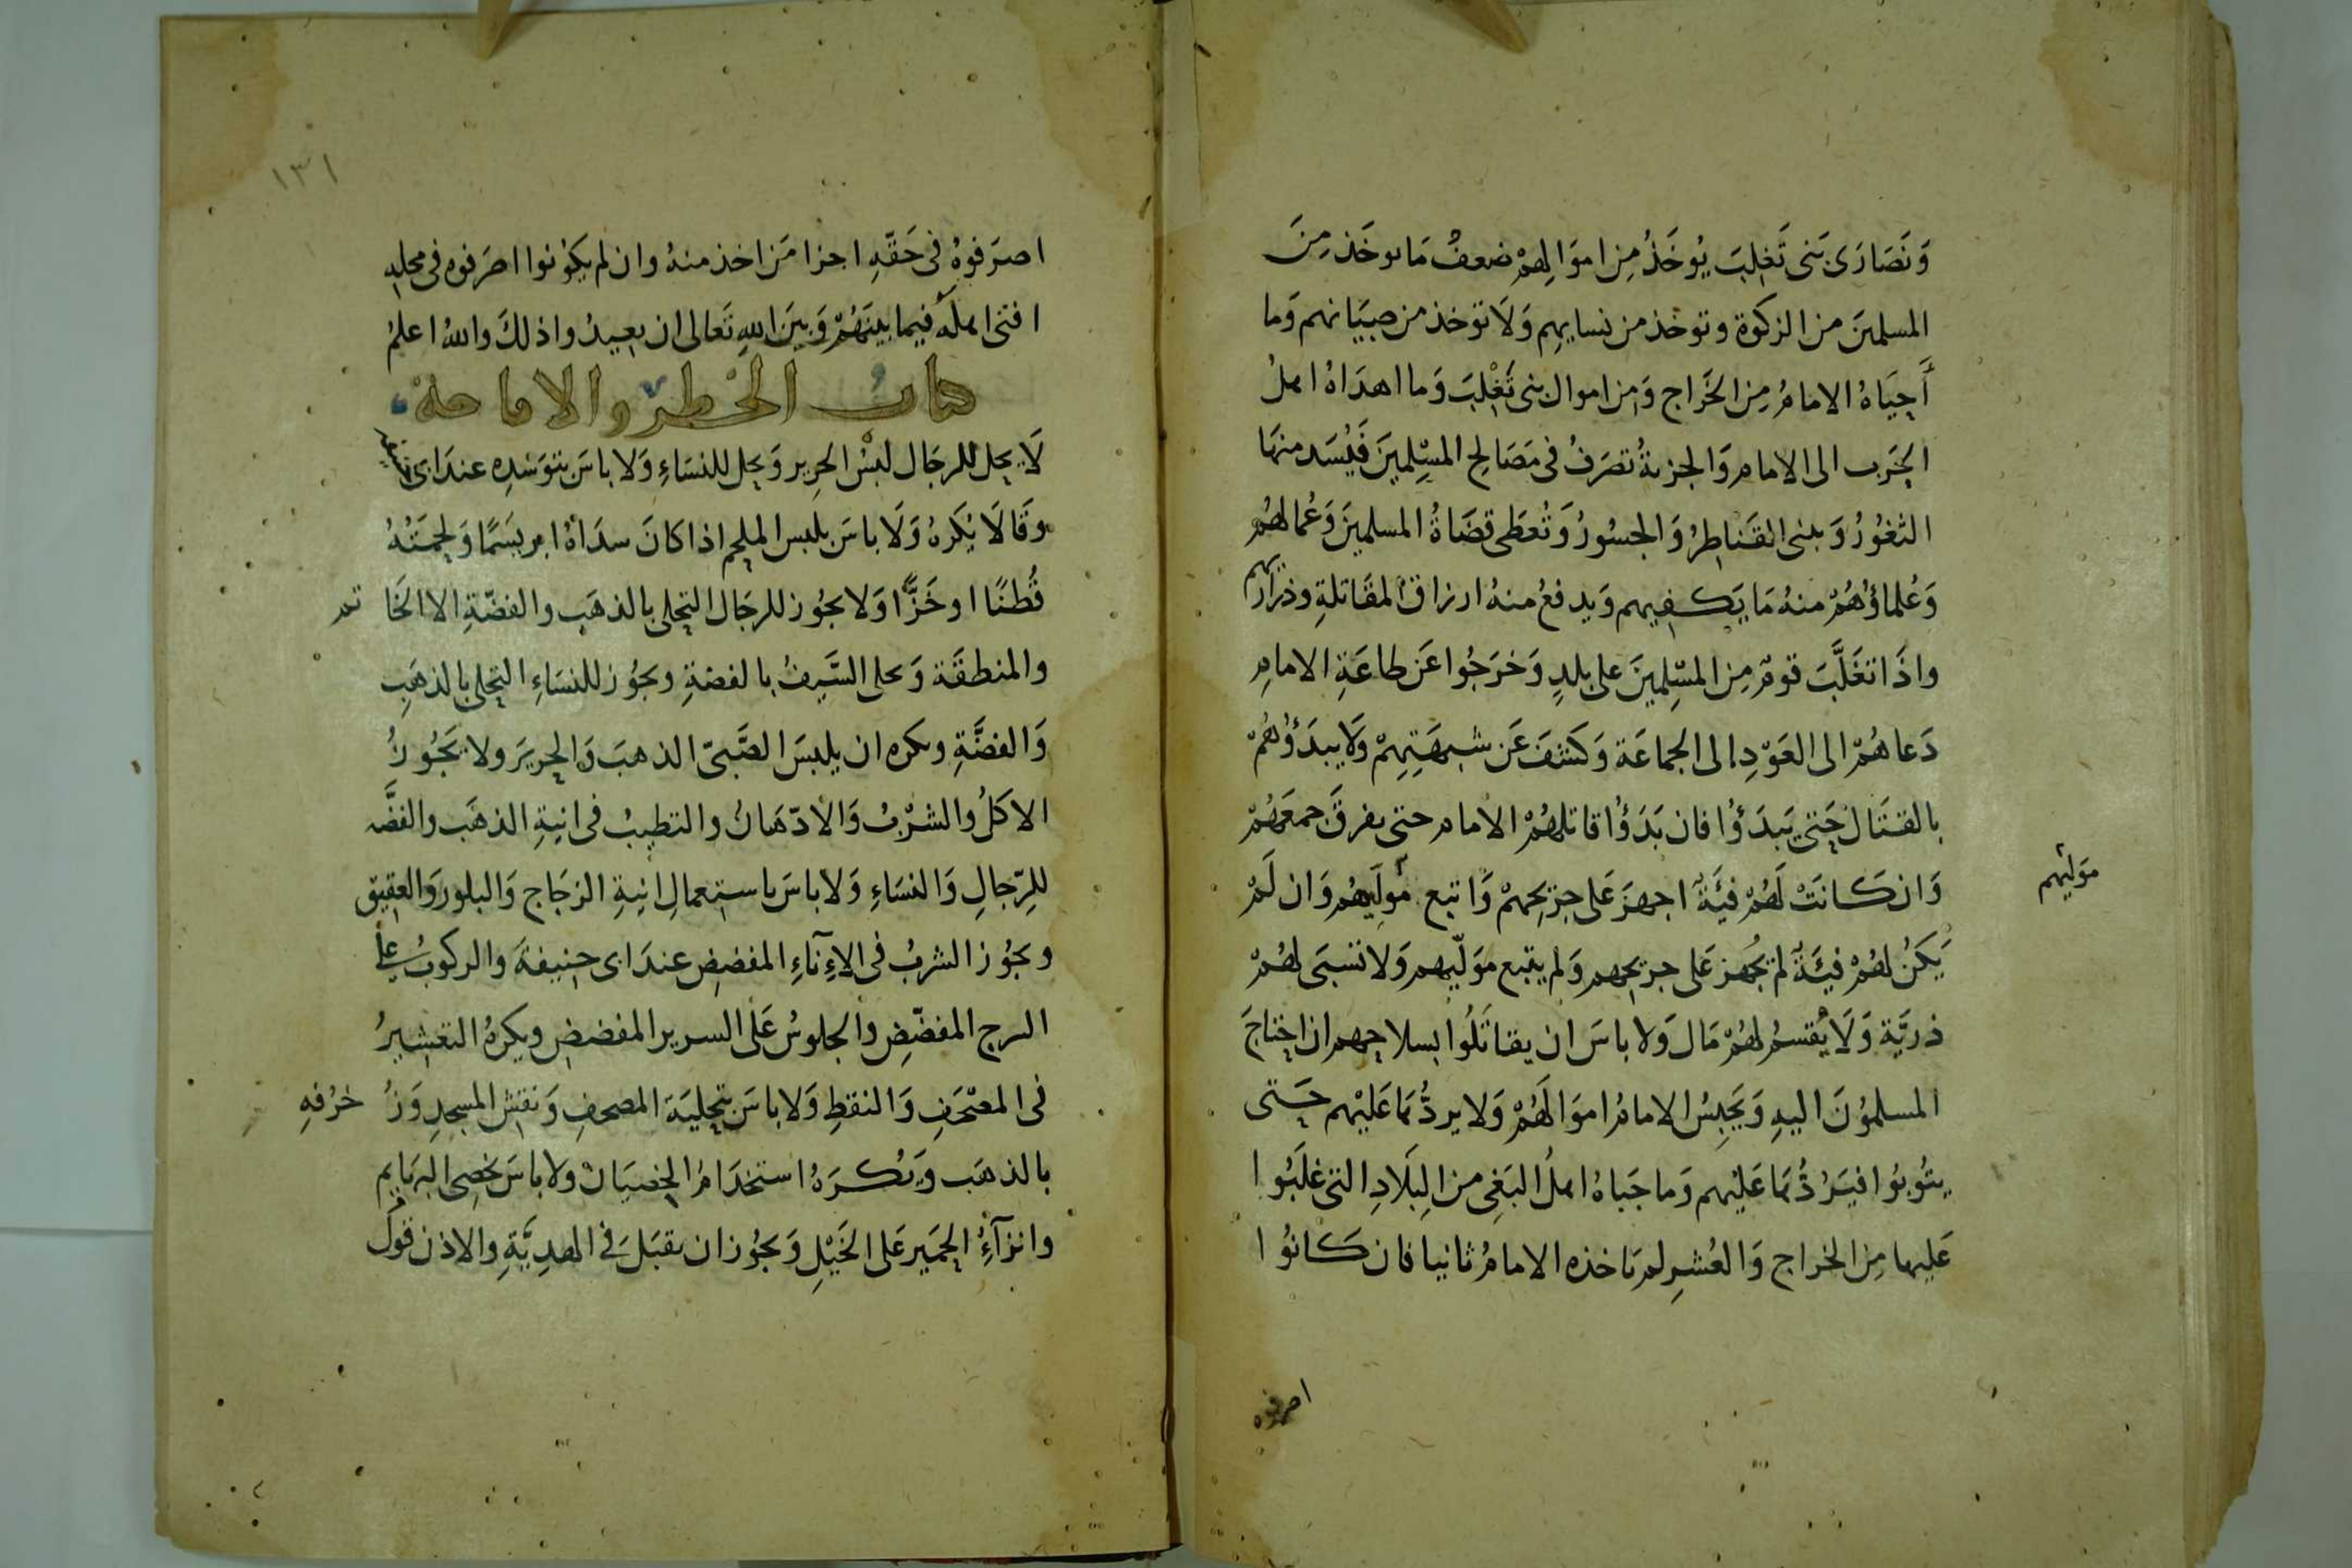 وَنَصَارَى بَنى تَغلِبَ يُوخَذُ مِن اموَالِهمْ ضعفُ مَا يوخَذ مِنَ
المسلمينَ من الزكوة وتوخذ من نسايهِم وَلَا توخذ من صبيَانهم وَما
أَجبَاهُ الامامُ مِن الخَراج وَمن اموال بنى تَغْلِبَ وَما اهدَاهُ اهلُ
الحَرب الى الامامِ وَالجزيةُ تصرَفُ فى مَصَالِح المسْلِمينَ فَيُسَد منهَا
الثغوُرُ وَيبنى القَنَاطِرُ وَالجسُورُ وَتُعطَى قضَاةُ المسلمينَ وَعُمالهُم
وَعُلماؤُهُمْ منهُ مَا يَكفِيهم وَيدفعُ منهُ ارزاقُ المقَاتلةِ وذراريهم
واذَا تغَلَّبَ قومٌ مِن المسْلِمينَ على بلدٍ وَخرَجُوا عَن طاعَةِ الامامِ
دَعاهُمْ الى العَوْدِ الى الجماعَة وَكَشفَ عَن شبهَتِهِمْ وَلَا يبدَؤُهُمْ
بالقتَال حَتى يَبدَؤُا فان بَدَؤُا قاتلهُمْ الامام حتى يفرقَ جمعَهُمْ
وَان كَانَتْ لَهُمْ فئَةٌ اجهزَ عَلى جرَيحِهمْ وَاتبع مُولِّيهُم وَان لَمْ
مَوليّهم
يَكنُ لهُمْ فئَةٌ لم يُجهز عَلى جريحهم وَلم يتبع موَلّيهم وَلا تسْبَى لهُمْ
ذريَّة وَلَا يُقسمُ لهُمْ مَال وَلا باسَ ان يقاتَلُوا بسلاحِهم ان احتاجَ
المسلموُنَ اليهِ وَيَحبِسُ الامامُ اموَالَهُمْ وَلا يردُّهَا عَليْهم حَتى
يتُوبوُا فيَرُدُّهَا عَليْهم وَما جَباهُ اهلُ البَغِى من البِلَادِ التى غلَبُوا
عَليها مِن الخراج وَالعُشرِ لم يَاخذه الامامُ ثانيا فان كَانوُا
اصرفوه
١٣١
اصرَفوهُ فى حَقّهِ اجزا مَن اخذ منهُ وان لم يَكوْنوا اصرَفوه فى محلهِ
افتى اهلَه فيما بينَهُمْ وَبَينَ اللهِ تَعالى ان يعيدُوا ذلكَ والله اعلمُ
كتابُ الحظر والاباحة
لَا يحل للرجَال لبْسُ الحرِير وَيحل للنسَاءِ وَلا باسَ بتوَسّدِه عندَ ابى حنيفة
وقَالَا يُكرَهُ وَلَا باسَ بلبس الملحم اذا كانَ سدَاهُ ابريسَمًا وَلحمَتُهُ
قُطنًا او خَزًّا وَلا يجوُز للرجَال التحلى بالذهَب والفضّةِ الا الخَا تم
والمنطقَة وَحلى السَّيفُ بالفضةِ ويجوُز للنسَاءِ التحلى بالذهَبِ
وَالفضَّةِ ويكره ان يلبسَ الصَّبىّ الذهبَ وَالحِريرَ ولا يَجُوزُ
الاكَلُ والشرْبُ وَالادّهَانُ والتطيبُ فى انيةِ الذهَب والفضَّه
للِرّجالِ وَالنسَاءِ وَلا باسَ باستعمالِ انِيةِ الزجَاج وَالبلور وَالعقيق
ويجوُز الشربُ فى الاِنآءِ المفضض عندَ ابى حنيفةَ والركوبُ على
السرج المفضّضِ والجلوسُ عَلَى السرير المفضض ويكرهُ التعشيرُ
فى المصْحَفِ وَالنقطِ وَلا باسَ بتحليَة المصحفِ وَنقش المسجدِ وَزُ خرُفهِ
بالذهَب وَيُكرَهُ استخدَامُ الخصيَان ولا باسَ بخصِى البهَايم
وانزآءُ الحمَير عَلى الخَيْلِ وَيجوُز ان يقبَلَ فى الهدِيَّةِ والاذن قولُ